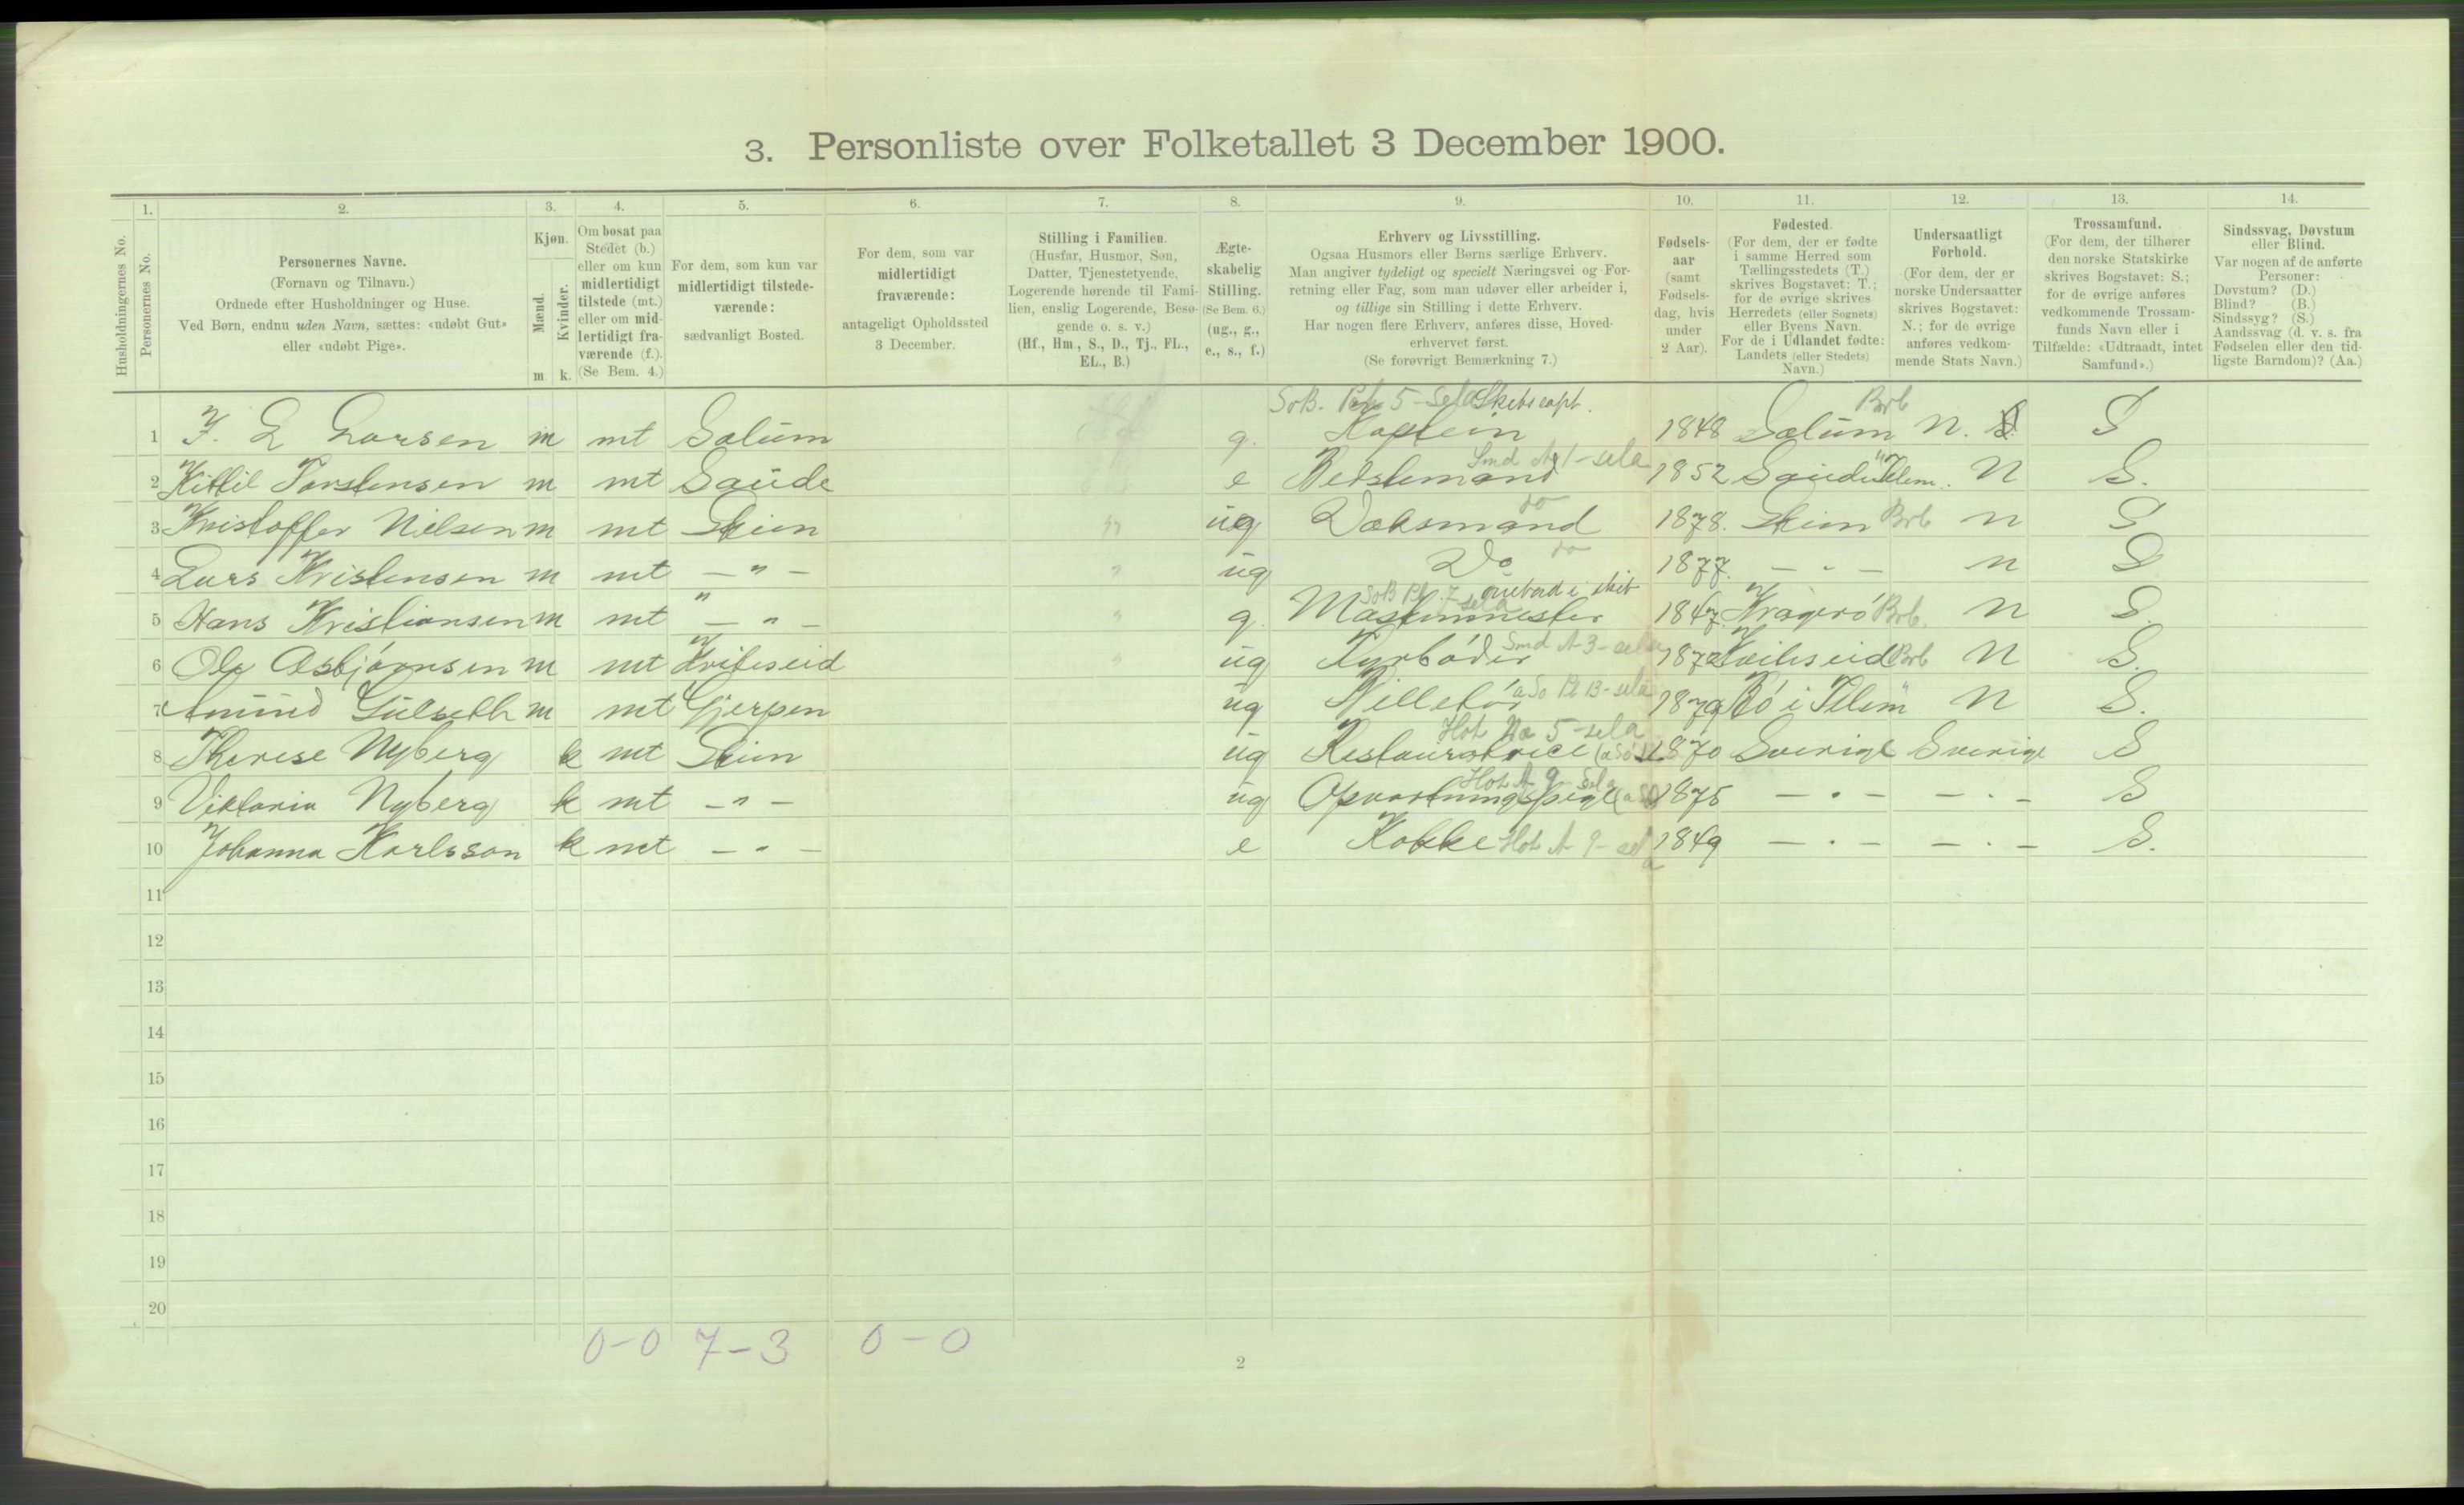 3. Personliste over Folketallet 3 December 1900.
1. 2. 3. 4. 5. 6. 7. 8. 9. 10. 11. 12. 13. 14.
Husholdningernes No.
Personernes No.
Personernes Navne.
(Fornavn og Tilnavn.)
Ordnede efter Husholdninger og Huse.
Ved Børn, endnu uden Navn, sættes: «udøbt Gut»
eller «udøbt Pige».
Kjøn.
Mænd.
Kvinder.
m. k.
Om bosat paa
Stedet (b.)
eller om kun
midlertidigt
tilstede (mt.)
eller om mid-
lertidigt fra-
værende (f.).
(Se Bem. 4.)
For dem, som kun var
midlertidigt tilstede-
værende:
sædvanligt Bosted.
For dem, som var
midlertidigt
fraværende:
antageligt Opholdssted
3 December.
Stilling i Familien.
(Husfar, Husmor, Søn,
Datter, Tjenestetyende,
Logerende hørende til Fami-
lien, enslig Logerende, Besø-
gende o. s. v.)
(Hf., Hm., S., D., Tj., FL.,
EL., B.)
Ægte-
skabelig
Stilling.
(Se Bem. 6.)
(ug., g.,
e., s., f.)
Erhverv og Livsstilling.
Ogsaa Husmors eller Børns særlige Erhverv.
Man angiver tydeligt og specielt Næringsvei og For-
retning eller Fag, som man udøver eller arbeider i,
og tillige sin Stilling i dette Erhverv.
Har nogen flere Erhverv, anføres disse, Hoved-
erhvervet først.
(Se forøvrigt Bemærkning 7.)
Fødsels-
aar
(samt
Fødsels-
dag, hvis
under
2 Aar).
Fødested.
(For dem, der er fødte
i samme Herred som
Tællingsstedets (T.)
skrives Bogstavet: T.;
for de øvrige skrives
Herredets (eller Sognets)
eller Byens Navn.
For de i Udlandet fødte:
Landets (eller Stedets)
Navn.)
Undersaatligt
Forhold.
(For dem, der er
norske Undersaatter
skrives Bogstavet:
N.; for de øvrige
anføres vedkom-
mende Stats Navn.)
Trossamfund.
(For dem, der tilhører
den norske Statskirke
skrives Bogstavet: S.;
for de øvrige anføres
vedkommende Trossam-
funds Navn eller i
Tilfælde: «Udtraadt, intet
Samfund».)
Sindssvag, Døvstum
eller Blind.
Var nogen af de anførte
Personer:
Døvstum? (D.)
Blind? (B.)
Sindssyg? (S.)
Aandssvag (d. v. s. fra
Fødselen eller den tid-
ligste Barndom)? (Aa.)
Skibscapt. Brb
1 F. L Larsen m mt Solum g. Kaptein 1848 Solum N. S
2 Kittil Torstensen m mt Saude e Bedstemand 1852 Saude Telem. N S.
do
3 Kristoffer Nilsen m mt Skien " ug Dæksmand 1878. Skien Brb N S
4 Lars Kristensen m mt — " — " ug Do do 1877. — " — N S
5 Hans Kristiansen m mt — " — " g. Maskinmester 1847. Kragerö Brb. N S.
6 Ole Asbjörnsen m mt Kviteseid " ug Fyrböder 1872 Kviteseid Brb N S.
7 Amund Gulseth m mt Gjerpen ug Billetör 1879 Bö i Telem N S.
8 Therese Nyberg k mt Skien ug Restauratrice 1870 Sverige Sverige S
9 Viktoria Nyberg k mt — " — ug Opvartningspige 1875 — " — — " — S
10 Johanna Karlsson k mt — " — e Kokke 1849 — " — — " — S.
11
12
13
14
15
16
17
18
19
20
0-0 7-3 0-0
2